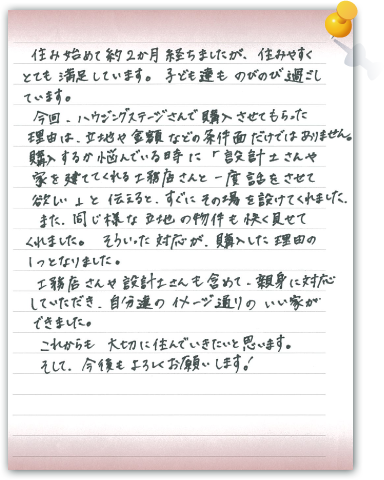 住み始めて約2か月経ちましたが、住みやすく
とても満足しています。子ども達ものびのび過ごし
ています。
今回、ハウジングステージさんで購入させてもらった
理由は、立地や金額などの条件面だけではありません。
購入するか悩んでいる時に「設計士さんや
家を建ててくれる工務店さんと一度話をさせて
欲しい」と伝えると、すぐにその場を設けてくれました。
また、同じ様な立地の物件も快く見せて
くれました。そういった対応が、購入した理由の
1つとなりました。
工務店さんや設計士さんも含めて、親身に対応
していただき、自分達のイメージ通りのいい家が
できました。
これからも大切に住んでいきたいと思います。
そして、今後もよろしくお願いします!